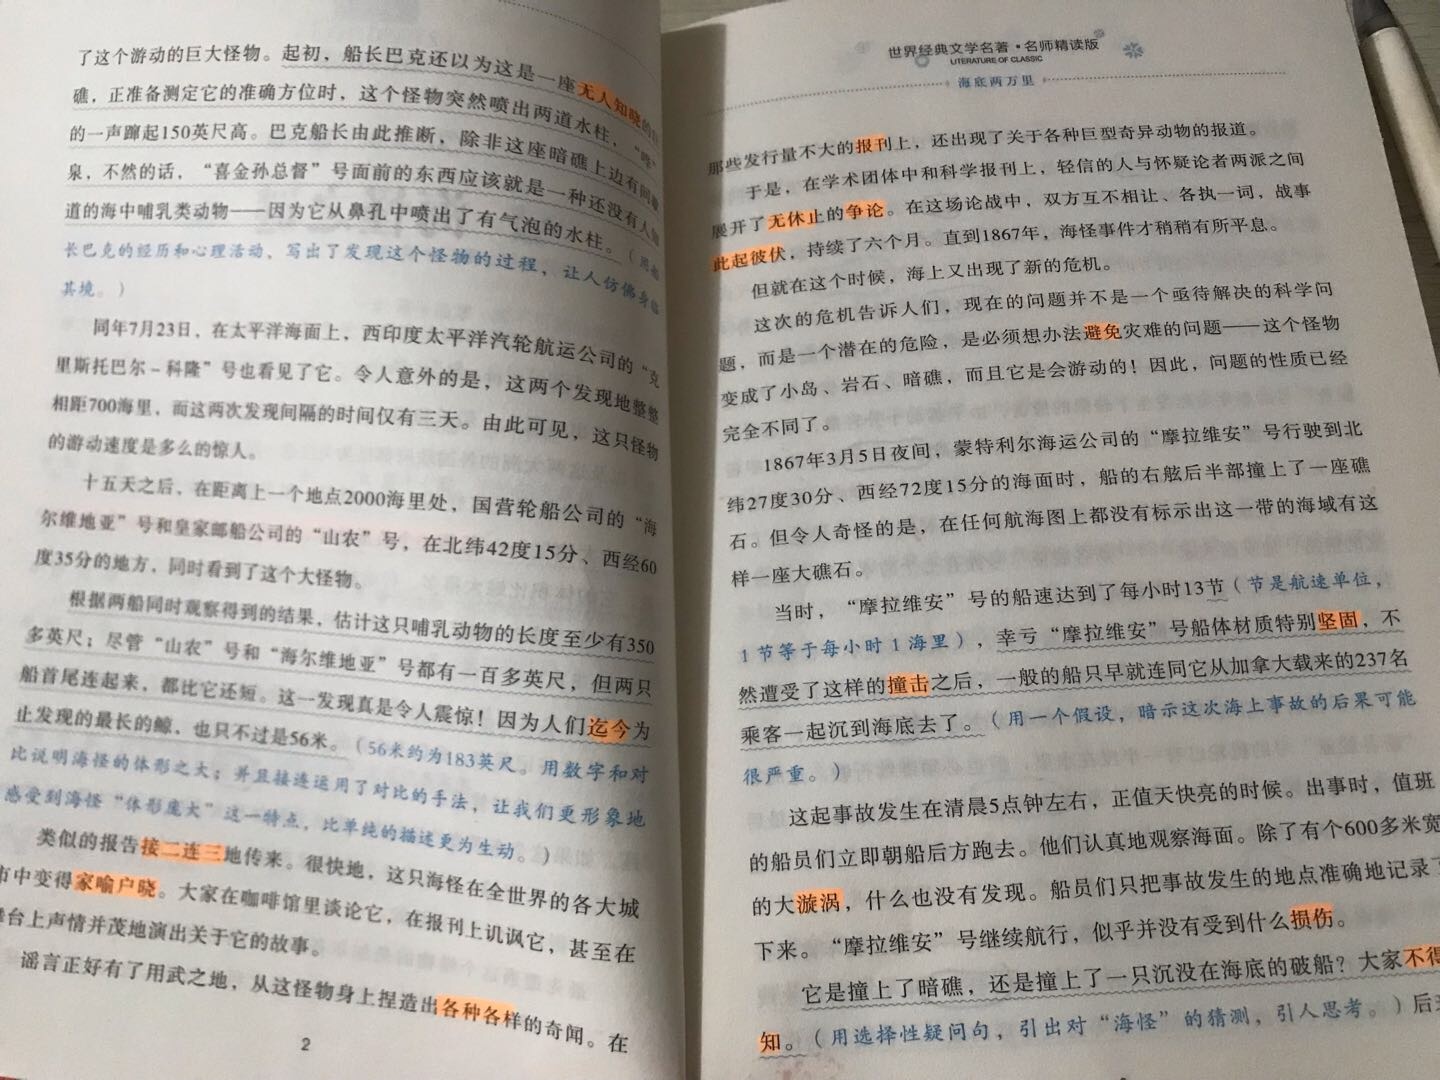 了这个游动的巨大怪物。起初，船长巴克还以为这是一座无人知晓的
礁，正准备测定它的准确方位时，这个怪物突然喷出两道水柱，“哗”
的一声蹿起150英尺高。巴克船长由此推断，除非这座暗礁上边有间歇
泉，不然的话，“喜金孙总督”号面前的东西应该就是一种还没有人
道的海中哺乳类动物——因为它从鼻孔中喷出了有气泡的水柱。（用
长巴克的经历和心理活动，写出了发现这个怪物的过程，让人仿佛身临
其境。）
同年7月23日，在太平洋海面上，西印度太平洋汽轮航运公司的“克
里斯托巴尔－科隆”号也看见了它。令人意外的是，这两个发现地整整
相距700海里，而这两次发现间隔的时间仅有三天。由此可见，这只怪物
的游动速度是多么的惊人。
十五天之后，在距离上一个地点2000海里处，国营轮船公司的“海
尔维地亚”号和皇家邮船公司的“山农”号，在北纬42度15分、西经60
度35分的地方，同时看到了这个大怪物。
根据两船同时观察得到的结果，估计这只哺乳动物的长度至少有350
多英尺；尽管“山农”号和“海尔维地亚”号都有一百多英尺，但两只
船首尾连起来，都比它还短。这一发现真是令人震惊！因为人们迄今为
止发现的最长的鲸，也只不过是56米。（56米约为183英尺。用数字和对
比说明海怪的体形之大；并且接连运用了对比的手法，让我们更形象地
感受到海怪“体形庞大”这一特点，比单纯的描述更为生动。）
类似的报告接二连三地传来。很快地，这只海怪在全世界的各大城
市中变得家喻户晓。大家在咖啡馆里谈论它，在报刊上讥讽它，甚至在
舞台上声情并茂地演出关于它的故事。
谣言正好有了用武之地，从这怪物身上捏造出各种各样的奇闻。在
2
世界经典文学名著·名师精读版
LITERATURE OF CLASSIC
海底两万里
那些发行量不大的报刊上，还出现了关于各种巨型奇异动物的报道。
于是，在学术团体中和科学报刊上，轻信的人与怀疑论者两派之间
展开了无休止的争论。在这场论战中，双方互不相让、各执一词，战事
此起彼伏，持续了六个月。直到1867年，海怪事件才稍稍有所平息。
但就在这个时候，海上又出现了新的危机。
这次的危机告诉人们，现在的问题并不是一个亟待解决的科学问
题，而是一个潜在的危险，是必须想办法避免灾难的问题——这个怪物
变成了小岛、岩石、暗礁，而且它是会游动的！因此，问题的性质已经
完全不同了。
1867年3月5日夜间，蒙特利尔海运公司的“摩拉维安”号行驶到北
纬27度30分、西经72度15分的海面时，船的右舷后半部撞上了一座礁
石。但令人奇怪的是，在任何航海图上都没有标示出这一带的海域有这
样一座大礁石。
当时，“摩拉维安”号的船速达到了每小时13节（节是航速单位，
1节等于每小时1海里），幸亏“摩拉维安”号船体材质特别坚固，不
然遭受了这样的撞击之后，一般的船只早就连同它从加拿大载来的237名
乘客一起沉到海底去了。（用一个假设，暗示这次海上事故的后果可能
很严重。）
这起事故发生在清晨5点钟左右，正值天快亮的时候。出事时，值班
的船员们立即朝船后方跑去。他们认真地观察海面。除了有个600多米宽
的大漩涡，什么也没有发现。船员们只把事故发生的地点准确地记录了
下来。“摩拉维安”号继续航行，似乎并没有受到什么损伤。
它是撞上了暗礁，还是撞上了一只沉没在海底的破船？大家不得
知。（用选择性疑问句，引出对“海怪”的猜测，引人思考。）后来